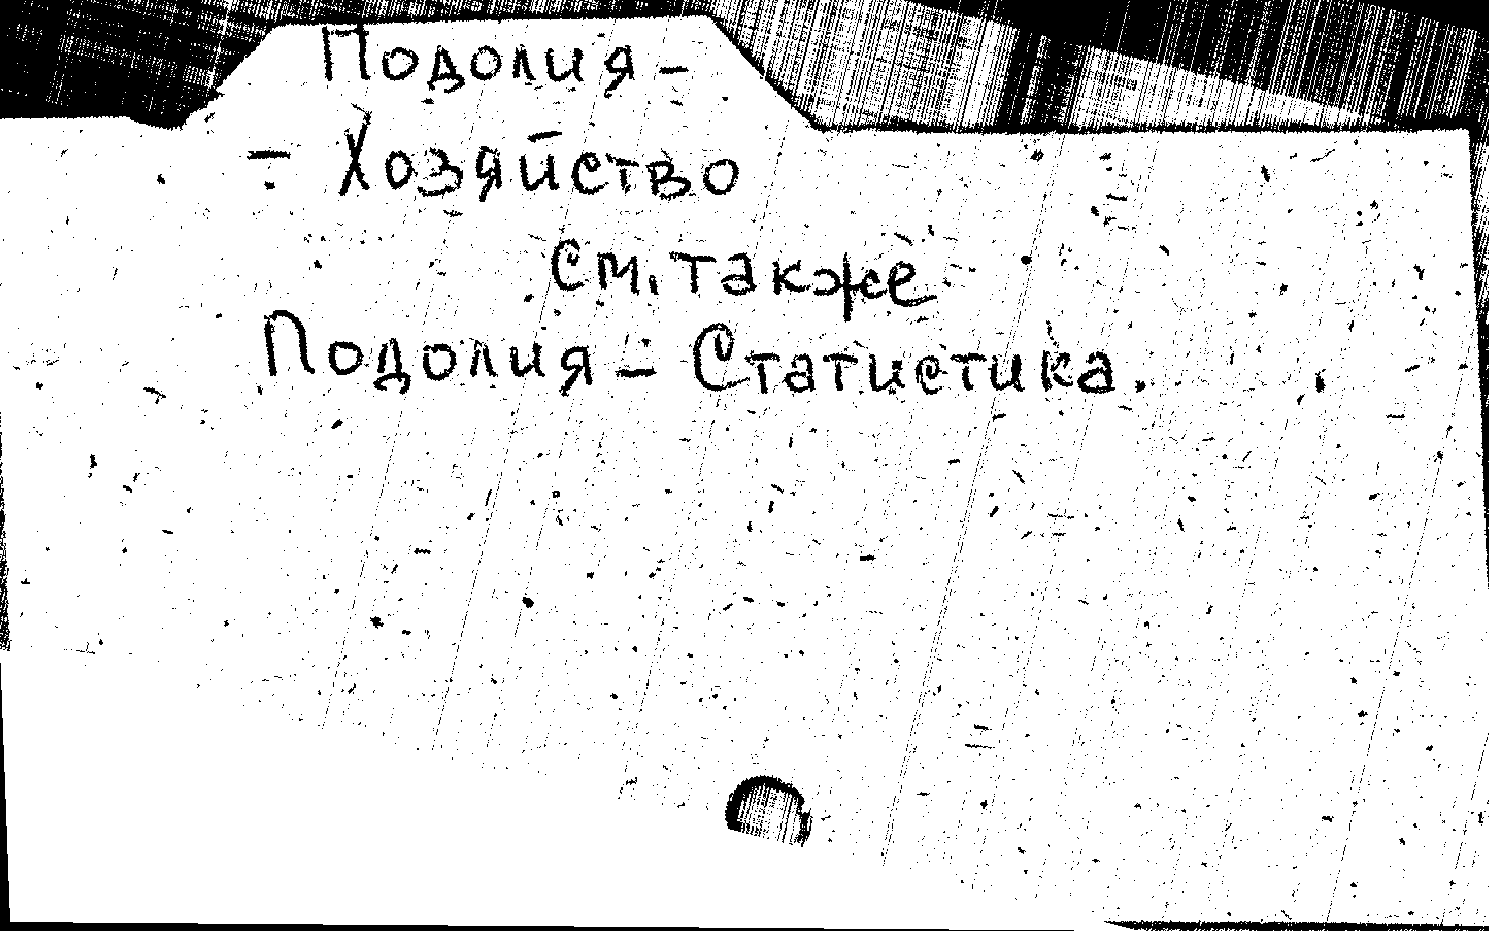 Подолия –
– Хозяйство
См. также
Подолия – Статистика.